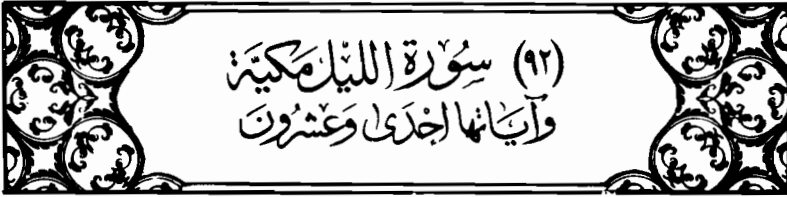 (٩٢) سُورَة اللَّيْل مَكيَّة
وَآيَاتها إحْدَى وَعشرُونَ